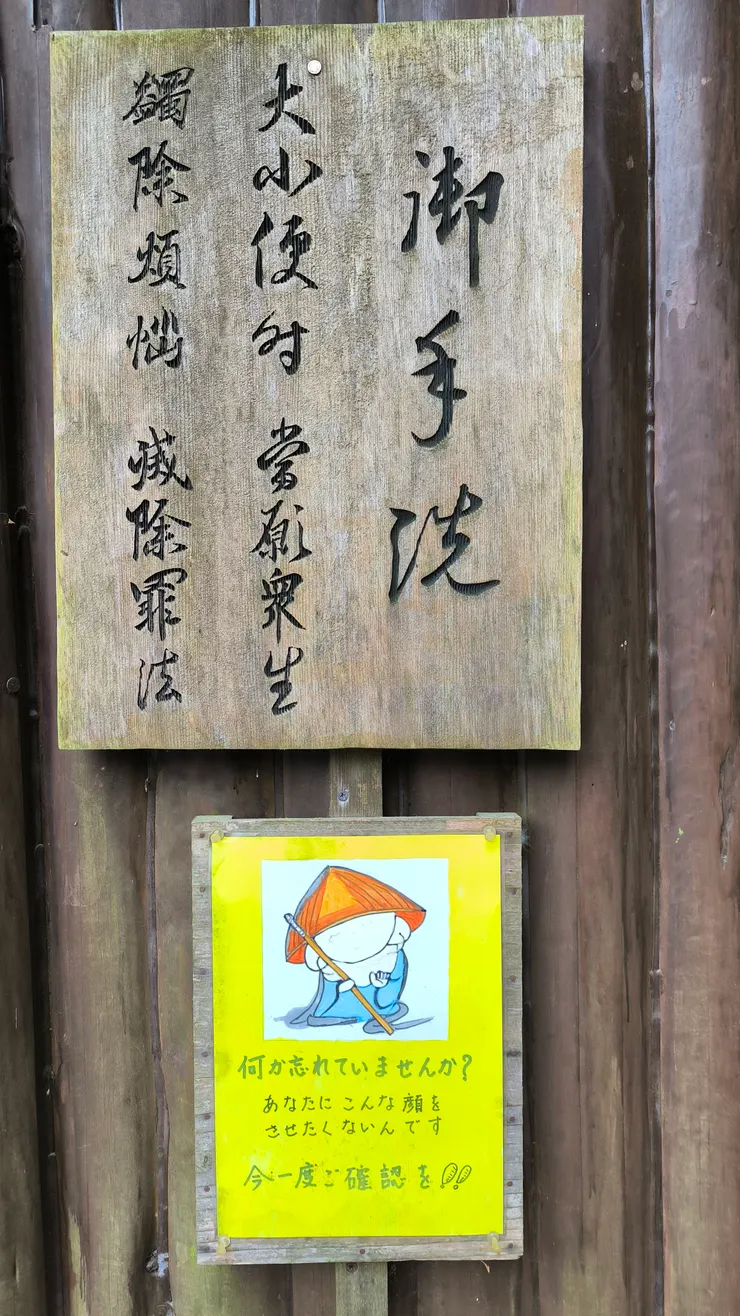 御手洗
大小便時 當願衆生
蠲除煩惱 滅除罪法
何か忘れていませんか?
あなたに こんな 顔を
させたく ないん です
今一度ご確認を!!